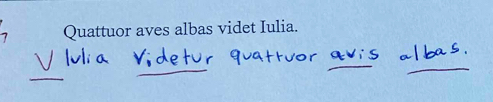 Quattuor aves albas videt Iulia.
V Iulia videtur quattuor avis albas.